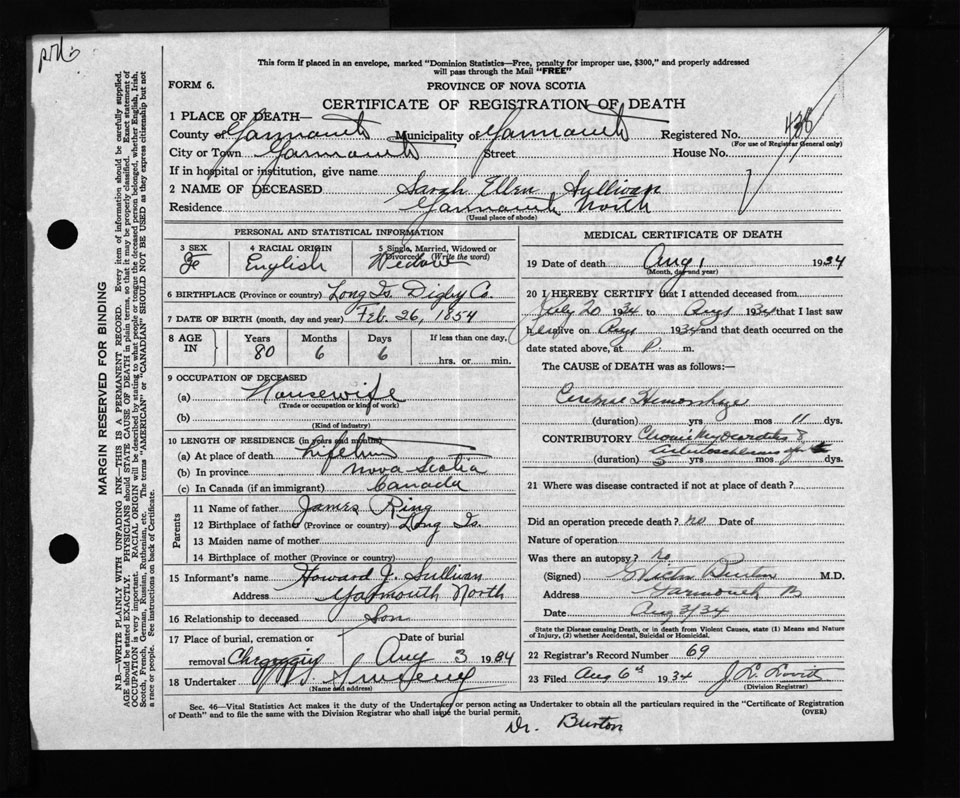 This form if placed in an envelope, marked "Dominion Statistics—Free, penalty for improper use, $300," and properly addressed
will pass through the Mail "FREE"
FORM 6.
PROVINCE OF NOVA SCOTIA
CERTIFICATE OF REGISTRATION OF DEATH
1 PLACE OF DEATH—
County of Yarmouth Municipality of Yarmouth Registered No. 438
(For use of Registrar General only)
City or Town Yarmouth Street House No.
If in hospital or institution, give name
2 NAME OF DECEASED Sarah Ellen Sullivan
Residence Yarmouth North
(Usual place of abode)
PERSONAL AND STATISTICAL INFORMATION
3 SEX 4 RACIAL ORIGIN 5 Single, Married, Widowed or
Divorced (Write the word)
Fe English Widow
6 BIRTHPLACE (Province or country) Long Is. Digby Co.
7 DATE OF BIRTH (month, day and year) Feb. 26, 1854
8 AGE IN Years Months Days If less than one day,
80 6 6 hrs. or min.
9 OCCUPATION OF DECEASED
(a) Housewife
(Trade or occupation or kind of work)
(b)
(Kind of industry)
10 LENGTH OF RESIDENCE (in years and months)
(a) At place of death Lifetime
(b) In province Nova Scotia
(c) In Canada (if an immigrant) Canada
Parents
11 Name of father James Ring
12 Birthplace of father (Province or country) Long Is.
13 Maiden name of mother
14 Birthplace of mother (Province or country)
15 Informant's name Howard J. Sullivan
Address Yarmouth North
16 Relationship to deceased Son
17 Place of burial, cremation or Date of burial
removal Aug 3 1934
18 Undertaker Sweeny
(Name and address)
MEDICAL CERTIFICATE OF DEATH
19 Date of death Aug 1 1934
(Month, day and year)
20 I HEREBY CERTIFY that I attended deceased from
July 20 1934 to Aug 1 1934 that I last saw
her alive on Aug 1934 and that death occurred on the
date stated above, at P. m.
The CAUSE of DEATH was as follows:—
Cerebral Hemorrhage
(duration) yrs mos 11 dys.
CONTRIBUTORY Chronic Myocarditis &
(duration) 5 yrs mos dys.
21 Where was disease contracted if not at place of death?
Did an operation precede death? no Date of
Nature of operation
Was there an autopsy? no
(Signed) Burton M.D.
Address Yarmouth
Date Aug 3/34
State the Disease causing Death, or in death from Violent Causes, state (1) Means and Nature
of Injury, (2) whether Accidental, Suicidal or Homicidal.
22 Registrar's Record Number 69
23 Filed Aug 6th 1934
(Division Registrar)
Sec. 46—Vital Statistics Act makes it the duty of the Undertaker or person acting as Undertaker to obtain all the particulars required in the "Certificate of Registration
of Death" and to file the same with the Division Registrar who shall issue the burial permit. (OVER)
Dr. Burton
MARGIN RESERVED FOR BINDING
N.B.—WRITE PLAINLY WITH UNFADING INK—THIS IS A PERMANENT RECORD. Every item of information should be carefully supplied.
AGE should be stated EXACTLY. PHYSICIANS should STATE CAUSE OF DEATH in plain terms, so that it may be properly classified. Exact statement of
OCCUPATION is very important. RACIAL ORIGIN will be described by stating to what people or tongue the deceased person belonged, whether English, Irish,
Scotch, French, German, Russian, Ruthenian, etc. The terms "AMERICAN" or "CANADIAN" SHOULD NOT BE USED as they express citizenship but not
a race or people. See instructions on back of Certificate.